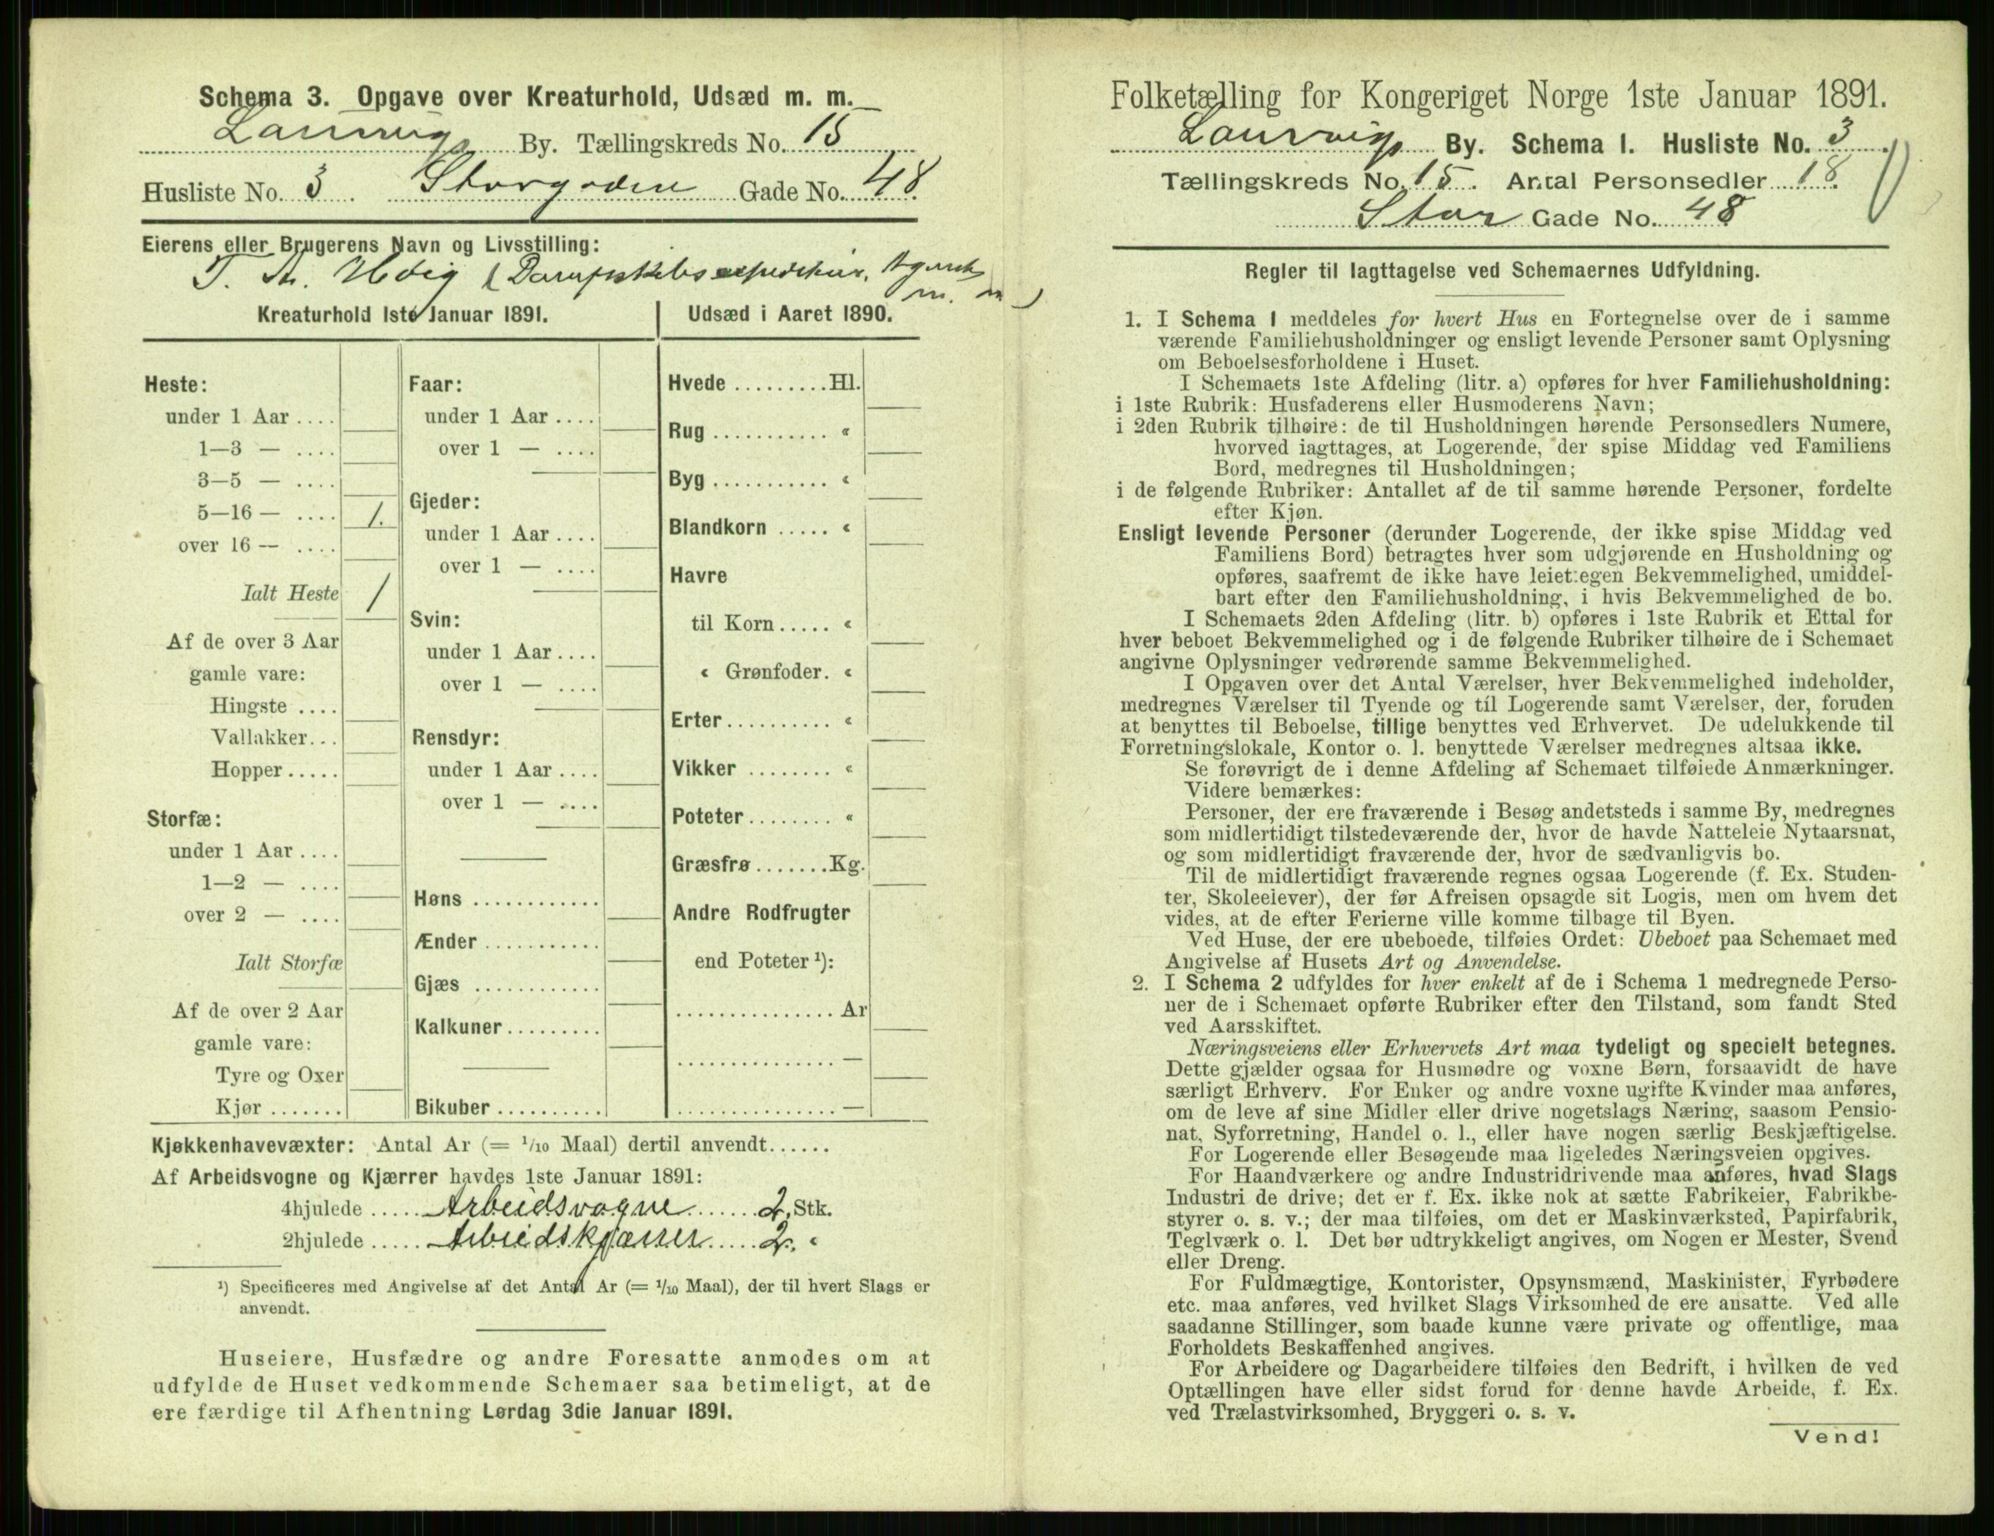 Schema 3. Opgave over Kreaturhold, Udsæd m. m.
Laurvig By. Tællingskreds No. 15
Husliste No. 3 Storgaden Gade No. 48.
Eierens eller Brugerens Navn og Livsstilling:
T. Th. Høeg (Dampskibsexpeditør, Agent
m. m.)
Kreaturhold 1ste Januar 1891.
Heste:
under 1 Aar ....
1—3 — ....
3—5 — ....
5—16 — .... 1.
over 16 — ....
Ialt Heste 1
Af de over 3 Aar
gamle vare:
Hingste ....
Vallakker...
Hopper.....
Storfæ:
under 1 Aar ....
1—2 — ....
over 2 — ....
Ialt Storfæ
Af de over 2 Aar
gamle vare:
Tyre og Oxer
Kjør .......
Faar:
under 1 Aar ....
over 1 — ....
Gjeder:
under 1 Aar ....
over 1 — ....
Svin:
under 1 Aar ....
over 1 — ....
Rensdyr:
under 1 Aar ....
over 1 — ....
Høns ............
Ænder ...........
Gjæs ............
Kalkuner.........
Bikuber ..........
Udsæd i Aaret 1890.
Hvede .........Hl.
Rug ........... «
Byg ........... «
Blandkorn ..... «
Havre
til Korn ..... «
« Grønfoder. «
Erter.......... «
Vikker ........ «
Poteter........ «
Græsfrø .......Kg.
Andre Rodfrugter
end Poteter ¹):
............... Ar
............... —
............... —
Kjøkkenhavevæxter: Antal Ar (= 1/10 Maal) dertil anvendt......
Af Arbeidsvogne og Kjærrer havdes 1ste Januar 1891:
4hjulede ..... Arbeidsvogne ...... 2. Stk.
2hjulede ..... Arbeidskjærrer ..... 2. «
¹) Specificeres med Angivelse af det Antal Ar (= 1/10 Maal), der til hvert Slags er
anvendt.
Huseiere, Husfædre og andre Foresatte anmodes om at
udfylde de Huset vedkommende Schemaer saa betimeligt, at de
ere færdige til Afhentning Lørdag 3die Januar 1891.
Folketælling for Kongeriget Norge 1ste Januar 1891.
Laurvig By. Schema 1. Husliste No. 3.
Tællingskreds No. 15. Antal Personsedler 18.
Stor Gade No. 48
Regler til Iagttagelse ved Schemaernes Udfyldning.
1. I Schema 1 meddeles for hvert Hus en Fortegnelse over de i samme
værende Familiehusholdninger og ensligt levende Personer samt Oplysning
om Beboelsesforholdene i Huset.
I Schemaets 1ste Afdeling (litr. a) opføres for hver Familiehusholdning:
i 1ste Rubrik: Husfaderens eller Husmoderens Navn;
i 2den Rubrik tilhøire: de til Husholdningen hørende Personsedlers Numere,
hvorved iagttages, at Logerende, der spise Middag ved Familiens
Bord, medregnes til Husholdningen;
i de følgende Rubriker: Antallet af de til samme hørende Personer, fordelte
efter Kjøn.
Ensligt levende Personer (derunder Logerende, der ikke spise Middag ved
Familiens Bord) betragtes hver som udgjørende en Husholdning og
opføres, saafremt de ikke have leiet egen Bekvemmelighed, umiddel-
bart efter den Familiehusholdning, i hvis Bekvemmelighed de bo.
I Schemaets 2den Afdeling (litr. b) opføres i 1ste Rubrik et Ettal for
hver beboet Bekvemmelighed og i de følgende Rubriker tilhøire de i Schemaet
angivne Oplysninger vedrørende samme Bekvemmelighed.
I Opgaven over det Antal Værelser, hver Bekvemmelighed indeholder,
medregnes Værelser til Tyende og til Logerende samt Værelser, der, foruden
at benyttes til Beboelse, tillige benyttes ved Erhvervet. De udelukkende til
Forretningslokale, Kontor o. l. benyttede Værelser medregnes altsaa ikke.
Se forøvrigt de i denne Afdeling af Schemaet tilføiede Anmærkninger.
Videre bemærkes:
Personer, der ere fraværende i Besøg andetsteds i samme By, medregnes
som midlertidigt tilstedeværende der, hvor de havde Natteleie Nytaarsnat,
og som midlertidigt fraværende der, hvor de sædvanligvis bo.
Til de midlertidigt fraværende regnes ogsaa Logerende (f. Ex. Studen-
ter, Skoleelever), der før Afreisen opsagde sit Logis, men om hvem det
vides, at de efter Ferierne ville komme tilbage til Byen.
Ved Huse, der ere ubeboede, tilføies Ordet: Ubeboet paa Schemaet med
Angivelse af Husets Art og Anvendelse.
2. I Schema 2 udfyldes for hver enkelt af de i Schema 1 medregnede Perso-
ner de i Schemaet opførte Rubriker efter den Tilstand, som fandt Sted
ved Aarsskiftet.
Næringsveiens eller Erhvervets Art maa tydeligt og specielt betegnes.
Dette gjælder ogsaa for Husmødre og voxne Børn, forsaavidt de have
særligt Erhverv. For Enker og andre voxne ugifte Kvinder maa anføres,
om de leve af sine Midler eller drive nogetslags Næring, saasom Pensio-
nat, Syforretning, Handel o. l., eller have nogen særlig Beskjæftigelse.
For Logerende eller Besøgende maa ligeledes Næringsveien opgives.
For Haandværkere og andre Industridrivende maa anføres, hvad Slags
Industri de drive; det er f. Ex. ikke nok at sætte Fabrikeier, Fabrikbe-
styrer o. s. v.; der maa tilføies, om det er Maskinværksted, Papirfabrik,
Teglværk o. l. Det bør udtrykkeligt angives, om Nogen er Mester, Svend
eller Dreng.
For Fuldmægtige, Kontorister, Opsynsmænd, Maskinister, Fyrbødere
etc. maa anføres, ved hvilket Slags Virksomhed de ere ansatte. Ved alle
saadanne Stillinger, som baade kunne være private og offentlige, maa
Forholdets Beskaffenhed angives.
For Arbeidere og Dagarbeidere tilføies den Bedrift, i hvilken de ved
Optællingen have eller sidst forud for denne havde Arbeide, f. Ex.
ved Trælastvirksomhed, Bryggeri o. s. v.
Vend!